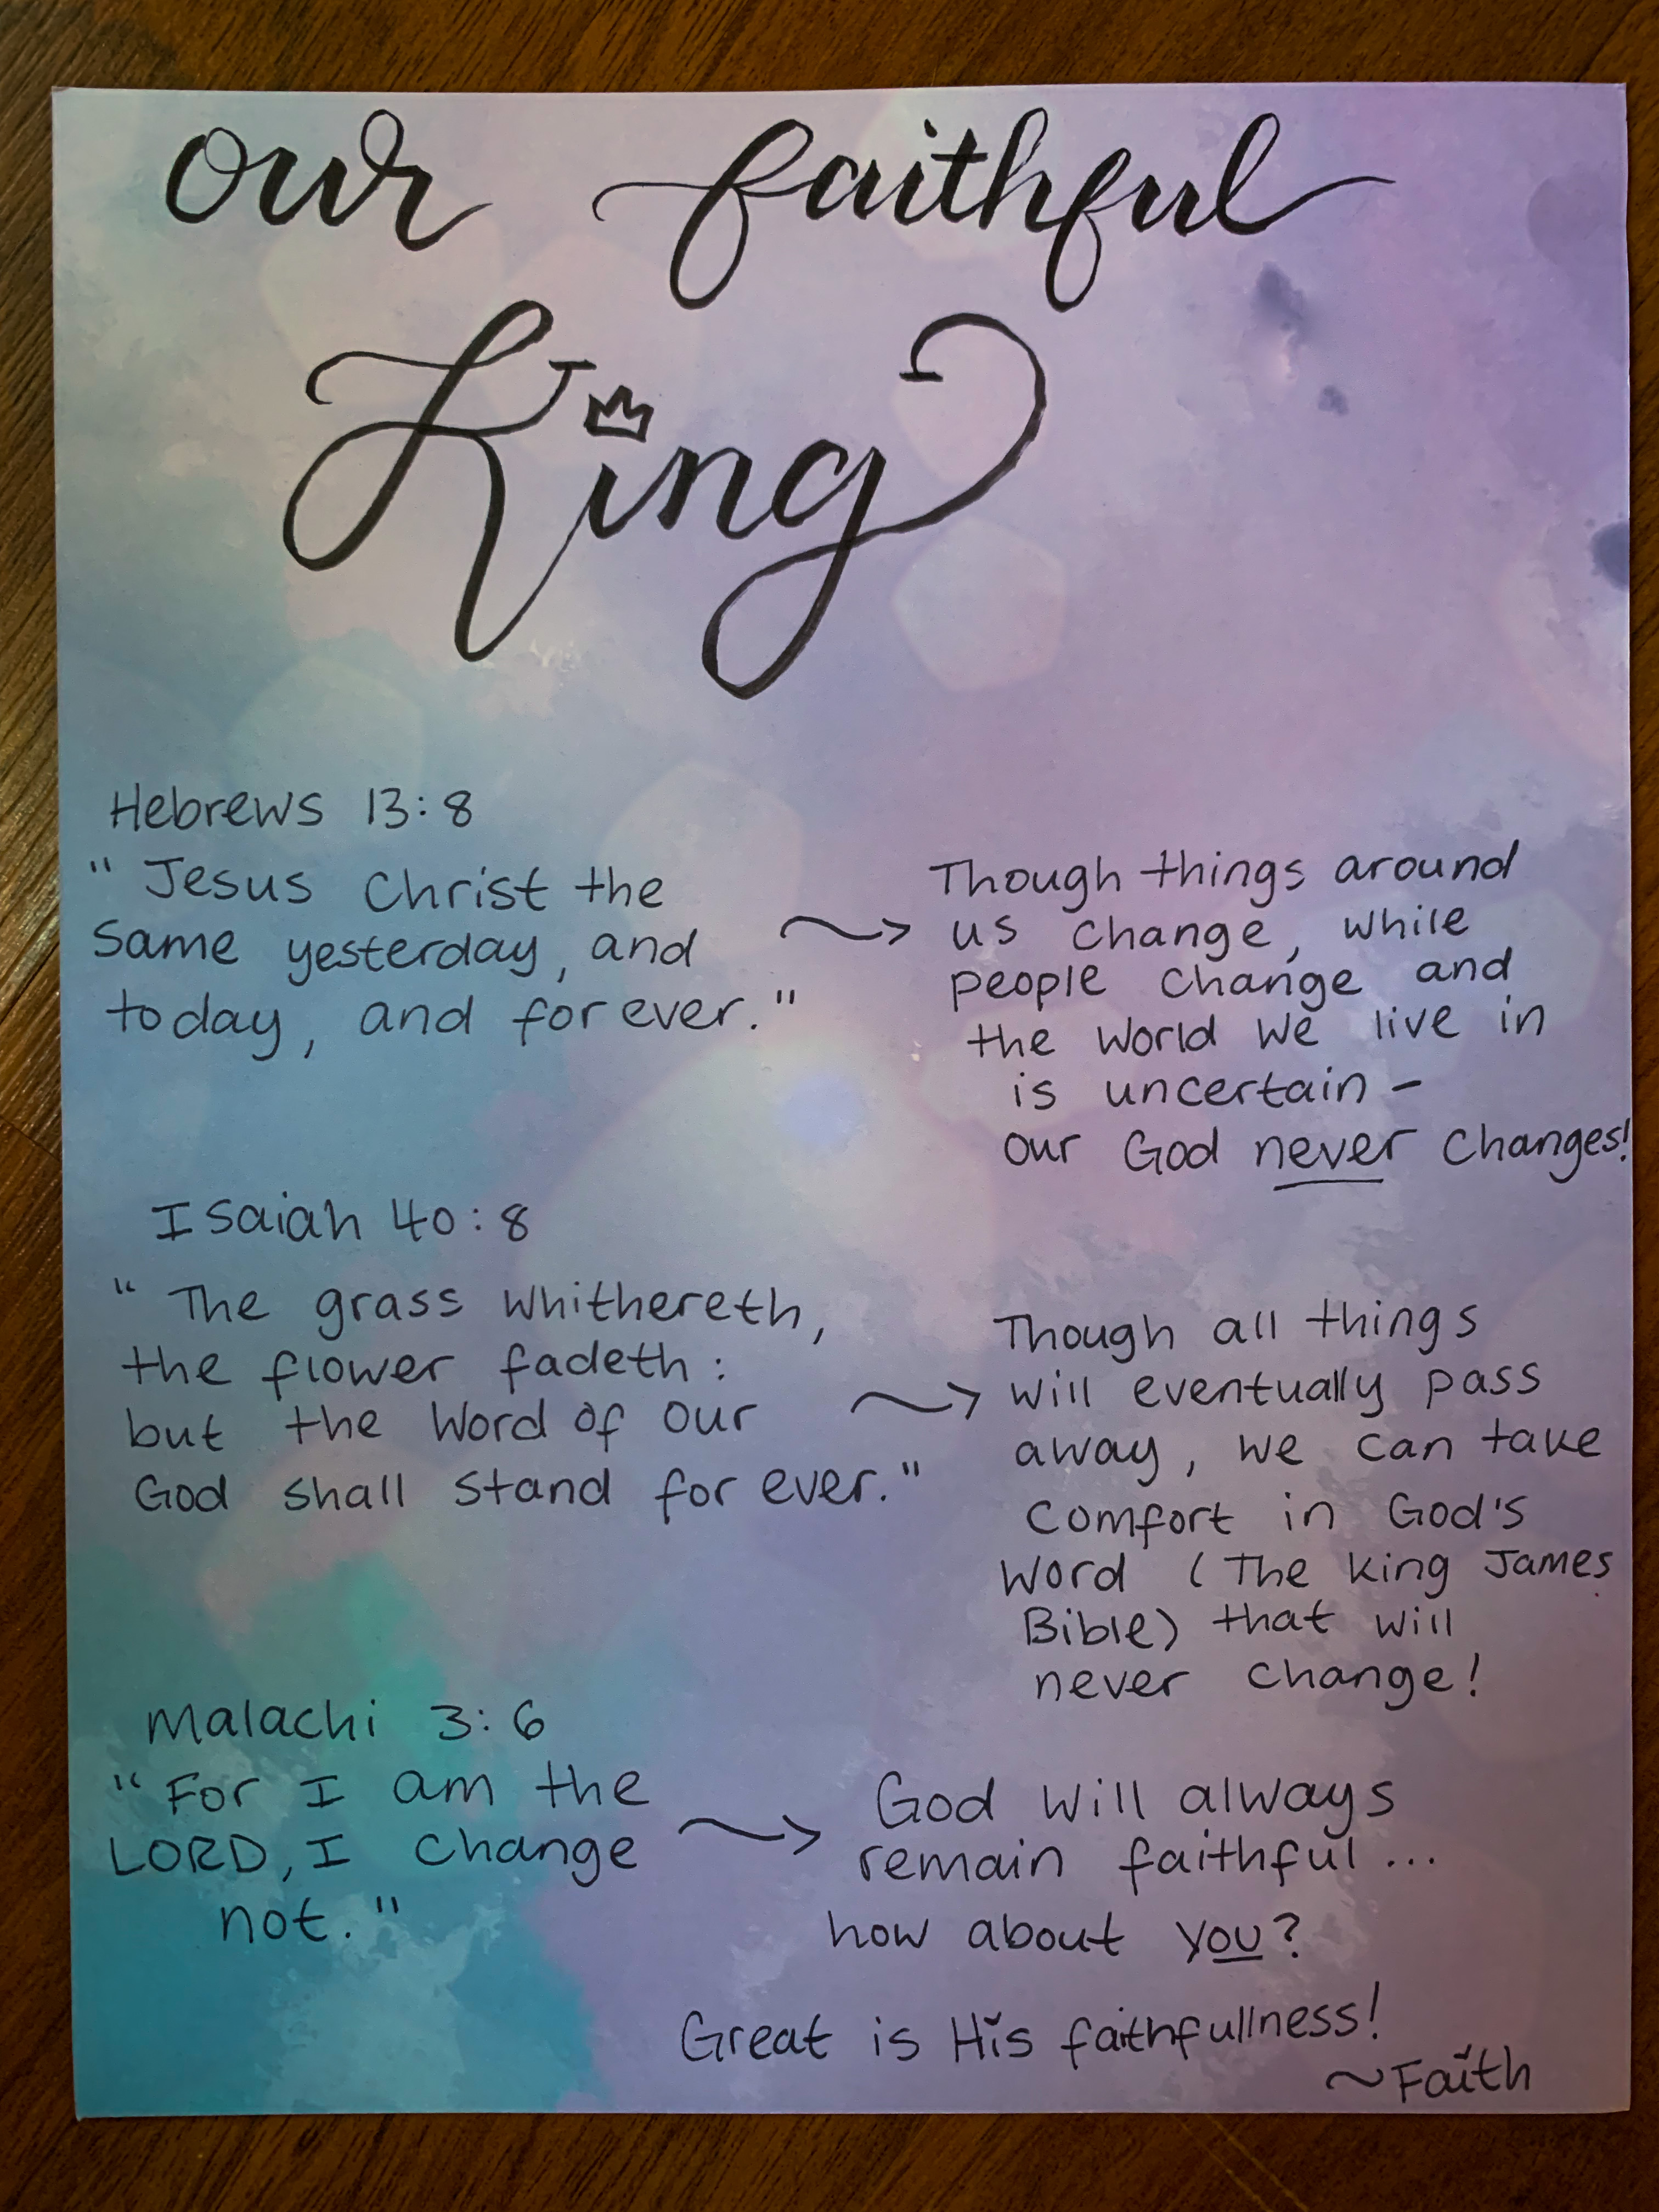 our faithful
King
Hebrews 13:8
"Jesus Christ the
same yesterday, and
today, and for ever."
Though things around
us change, while
people change and
the world we live in
is uncertain -
our God never changes!
Isaiah 40:8
"The grass whithereth,
the flower fadeth:
but the word of our
God shall stand for ever."
Though all things
will eventually pass
away, we can take
comfort in God's
Word (The King James
Bible) that will
never change!
Malachi 3:6
"For I am the
LORD, I change
not."
God will always
remain faithful...
how about you?
Great is His faithfullness!
~Faith